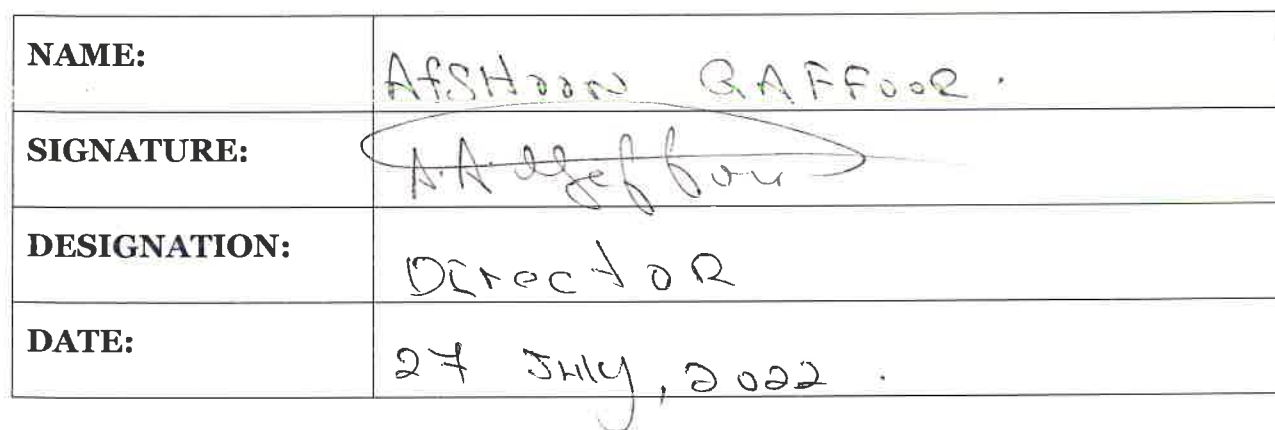 NAME: AfSHOON GAFFOOR.
SIGNATURE: A.A. Gaffoor
DESIGNATION: DIrectoR
DATE: 27 JUly, 2022.